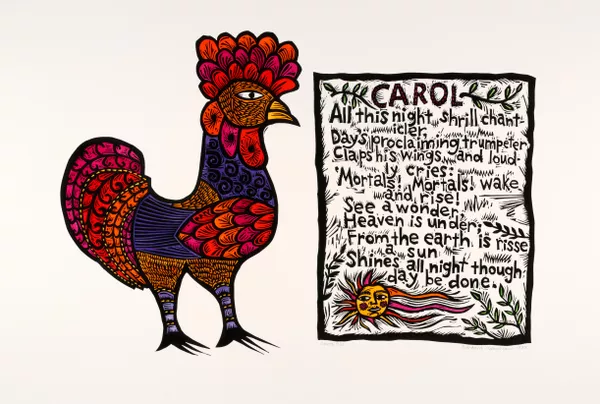 CAROL
All this night shrill chant-
icler,
Days proclaiming trumpeter
Claps his wings and loud-
ly cries:
"Mortals! Mortals! wake
and rise!
See a wonder,
Heaven is under;
From the earth is risse
a sun
Shines all night though
day be done.